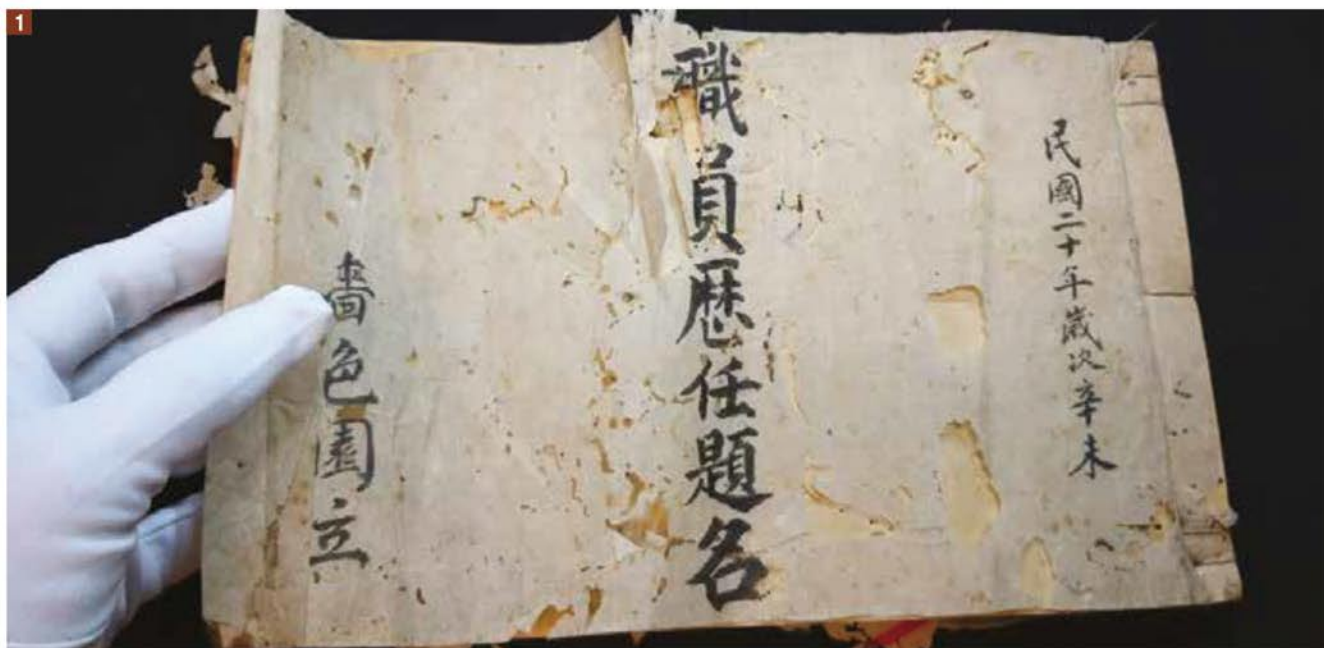 1
民國二十年歲次辛未
職員歷任題名
嗇色園立